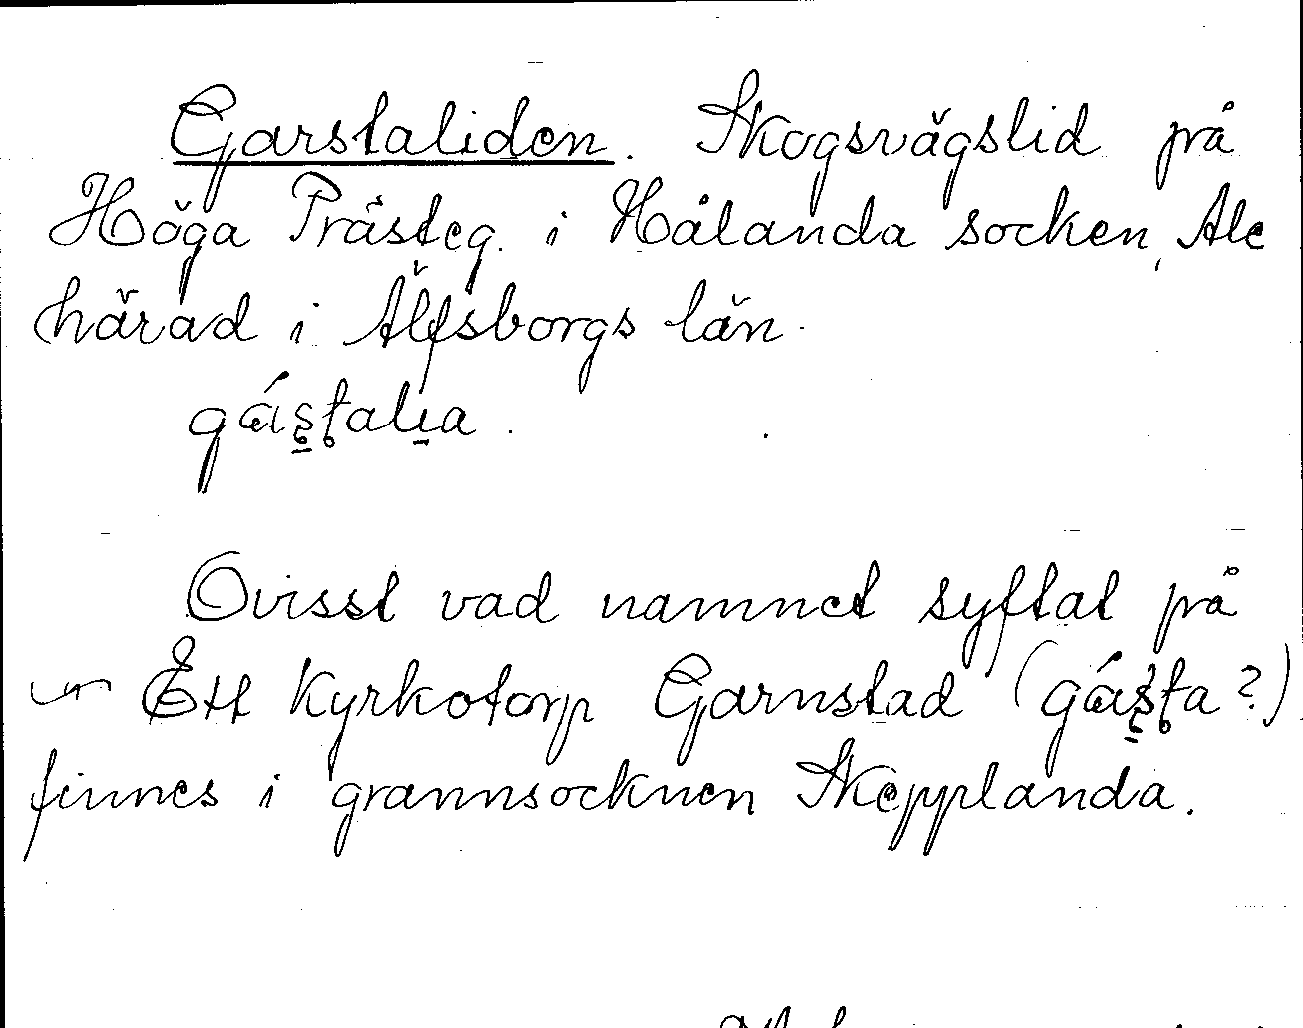 Garstaliden. Skogsvägslid på
Höga Prästeg. i Hålanda socken, Ale
härad i Älfsborgs län.
gás̱ṭalı̱a.
Ovisst vad namnet syftat på
Ett kyrkotorp Garnstad (gás̱ṭa?)
finnes i grannsocknen Skepplanda.